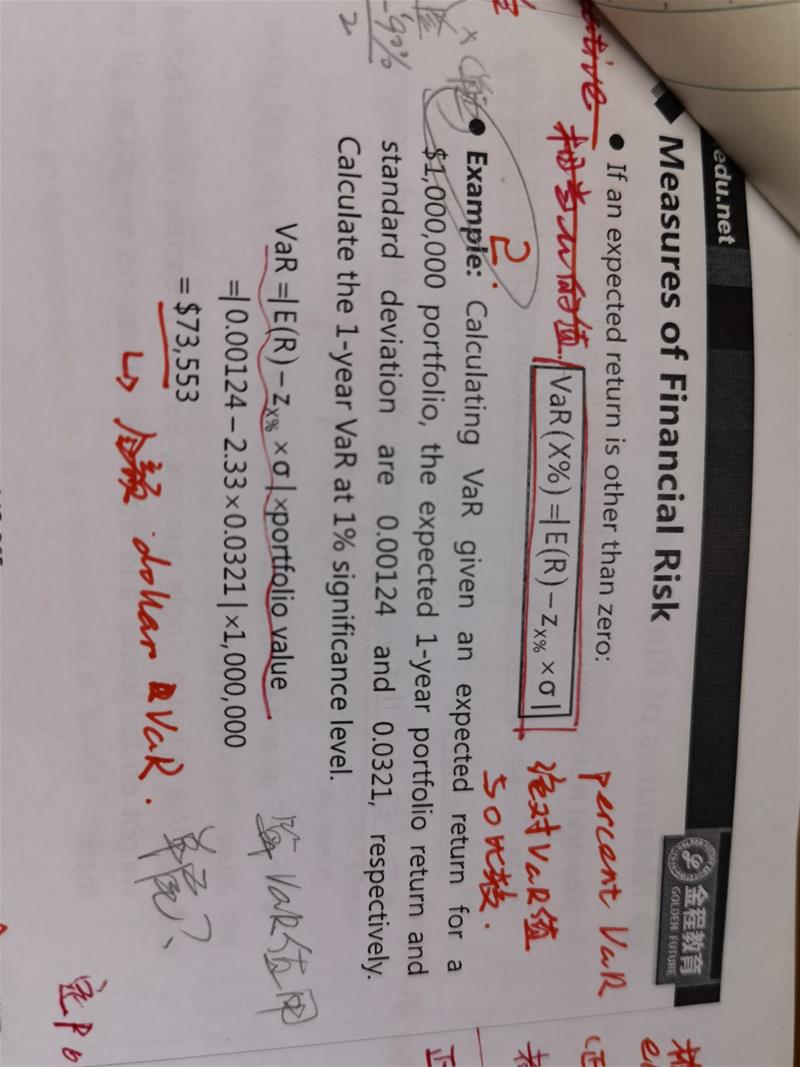 edu.net
金程教育
GOLDEN FUTURE
Measures of Financial Risk
percent VaR
● If an expected return is other than zero:
VaR(X%)=|E(R)−z_X%×σ|
绝对VaR值
与0比较.
2.
● Example: Calculating VaR given an expected return for a
$1,000,000 portfolio, the expected 1-year portfolio return and
standard deviation are 0.00124 and 0.0321, respectively.
Calculate the 1-year VaR at 1% significance level.
VaR =|E(R)−z_x%×σ|×portfolio value
=|0.00124−2.33×0.0321|×1,000,000
= $73,553
↳ 金额 dollar VaR.
算VaR值用
单尾?